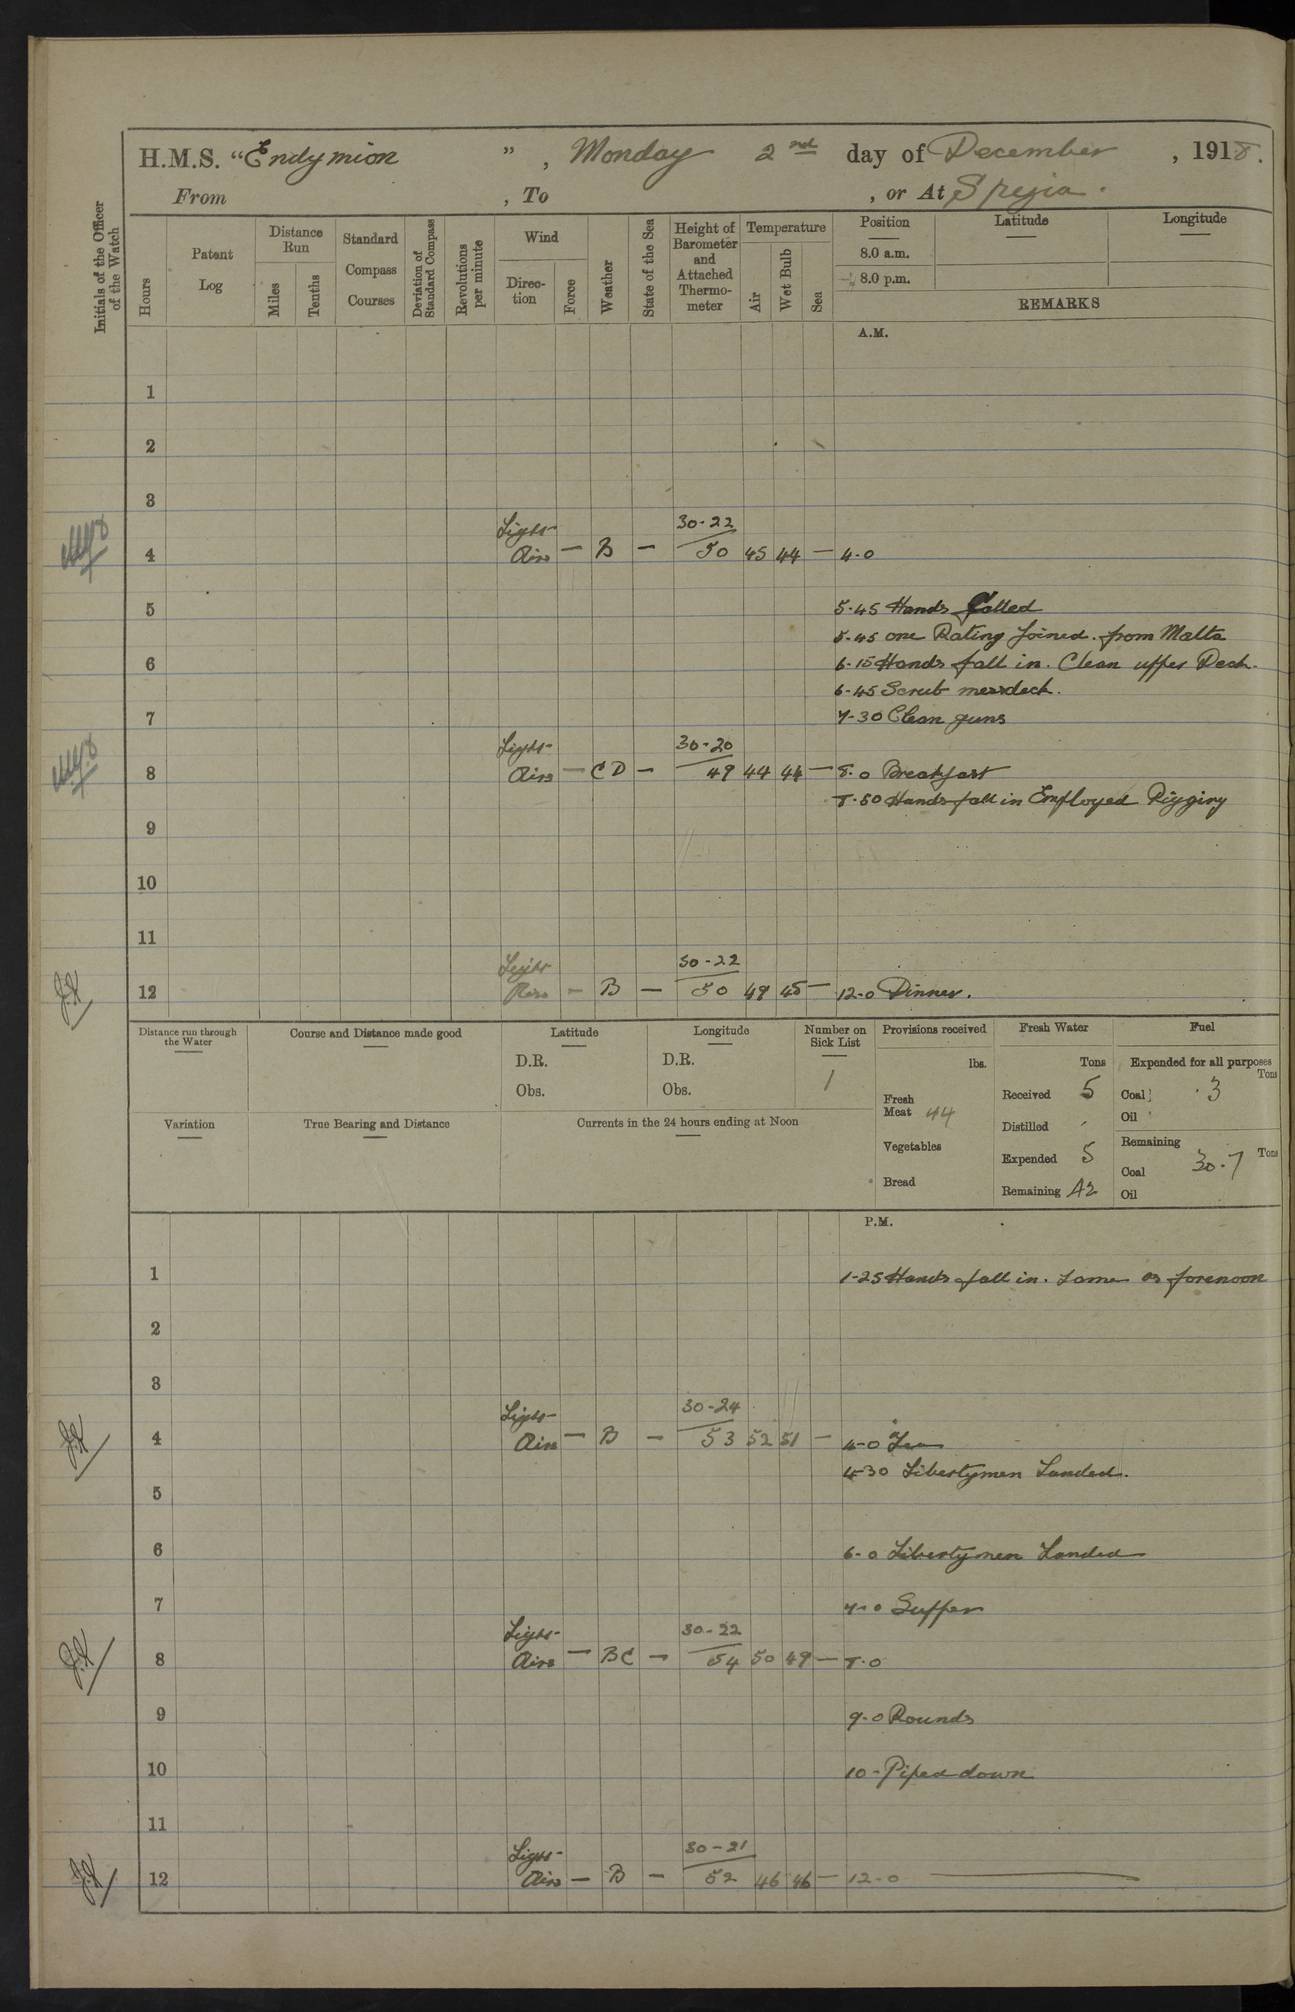 H.M.S. "Endymion", Monday 2nd day of December, 1918.
From , To , or At Spezia.
Initials of the Officer of the Watch
Hours
Patent Log
Distance Run
Miles
Tenths
Standard Compass Courses
Deviation of Standard Compass
Revolutions per minute
Wind
Direction
Force
Weather
State of the Sea
Height of Barometer and Attached Thermometer
Temperature
Air
Wet Bulb
Sea
Position
8.0 a.m.
8.0 p.m.
Latitude
Longitude
REMARKS
A.M.
1
2
3
Light 30-22
4 Airs — B — 50 45 44 — 4-0
5 5-45 Hands Called
5-45 one Rating Joined. from Malta
6 6-15 Hands fall in. Clean upper Deck.
6-45 Scrub messdeck.
7 7-30 Clean guns
Light 30-20
8 Airs — CD — 49 44 44 — 8-0 Breakfast
8-50 Hands fall in Employed Rigging
9
10
11
Light 30-22
12 Airs — B — 50 49 45 — 12-0 Dinner.
Distance run through the Water
Course and Distance made good
Latitude
D.R.
Obs.
Longitude
D.R.
Obs.
Number on Sick List
1
Provisions received
lbs.
Fresh Meat 44
Vegetables
Bread
Fresh Water
Tons
Received 5
Distilled
Expended 5
Remaining 42
Fuel
Expended for all purposes
Tons
Coal .3
Oil
Remaining
Tons
Coal 30.7
Oil
Variation
True Bearing and Distance
Currents in the 24 hours ending at Noon
P.M.
1 1-25 Hands fall in. Same as forenoon
2
3
Light 30-24
4 Airs — B — 53 52 51 — 4-0 Tea
4-30 Libertymen Landed.
5
6 6-0 Libertymen Landed
7 7-0 Supper
Light 30-22
8 Airs — BC — 54 50 49 — 8-0
9 9-0 Rounds
10 10- Piped down
11
Light 30-21
12 Airs — B — 52 46 46 — 12-0